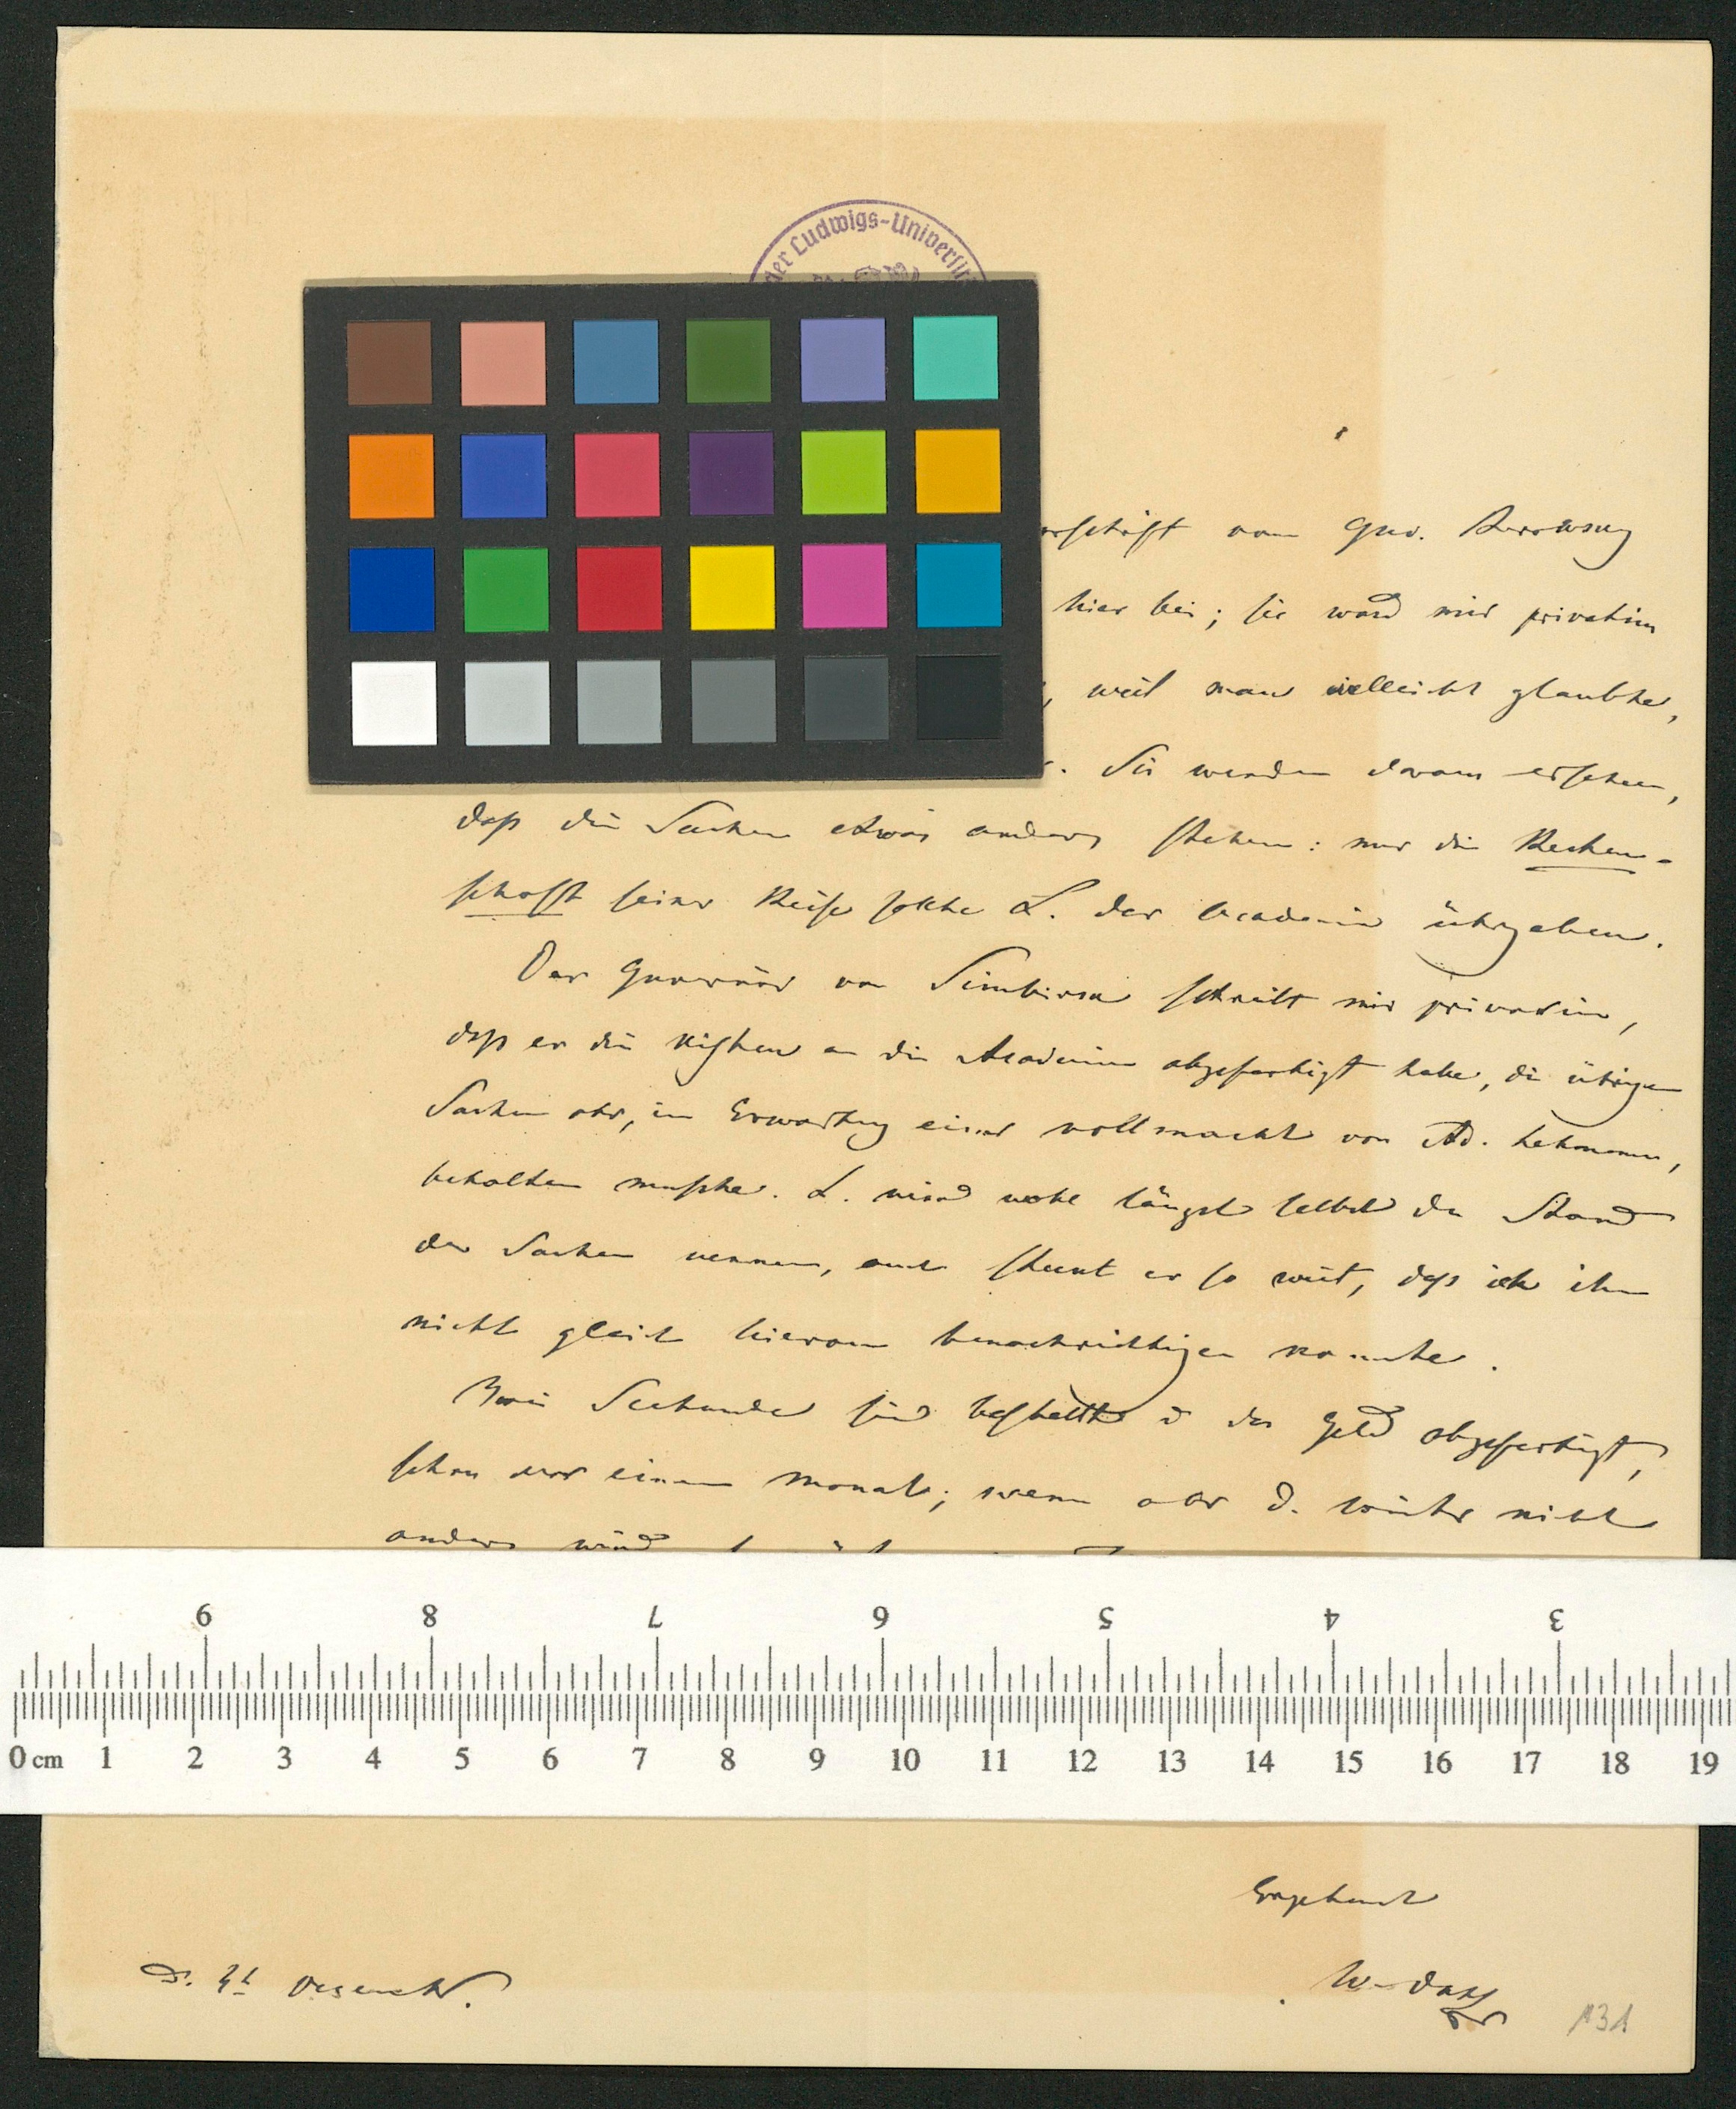 der Ludwigs-Universit
vom Guv.
hier bei; sie ward mir privatim
weil man vielleicht glaubte,
Sie werden daraus ersehen,
daß die Sachen etwas anders stehen: nur die Rechen-
schafft seiner Reise sollte L. der Academie übergeben.
Der Guvernör von Simbirsk schreibt mir privatim,
daß er die Kisten an die Academie abgefertigt habe, die übrigen
Sachen abr, in Erwartung einer vollmacht von Ad. Lehmann,
behalten mußte. L. wird wohl längst selbst den Stand
der Sachen kennen, auch steckt er so weit, daß ich ihn
nicht gleich hiervon benachrichtigen konnte.
Zwei Seehunde sind bestellt u das Geld abgefertigt,
schon vor einem Monat; wenn abr d. winter nicht
anders wird
9 8 7 6 5 4 3
0 cm 1 2 3 4 5 6 7 8 9 10 11 12 13 14 15 16 17 18 19
Ergebenst
W. Dahl
D. 4t
131